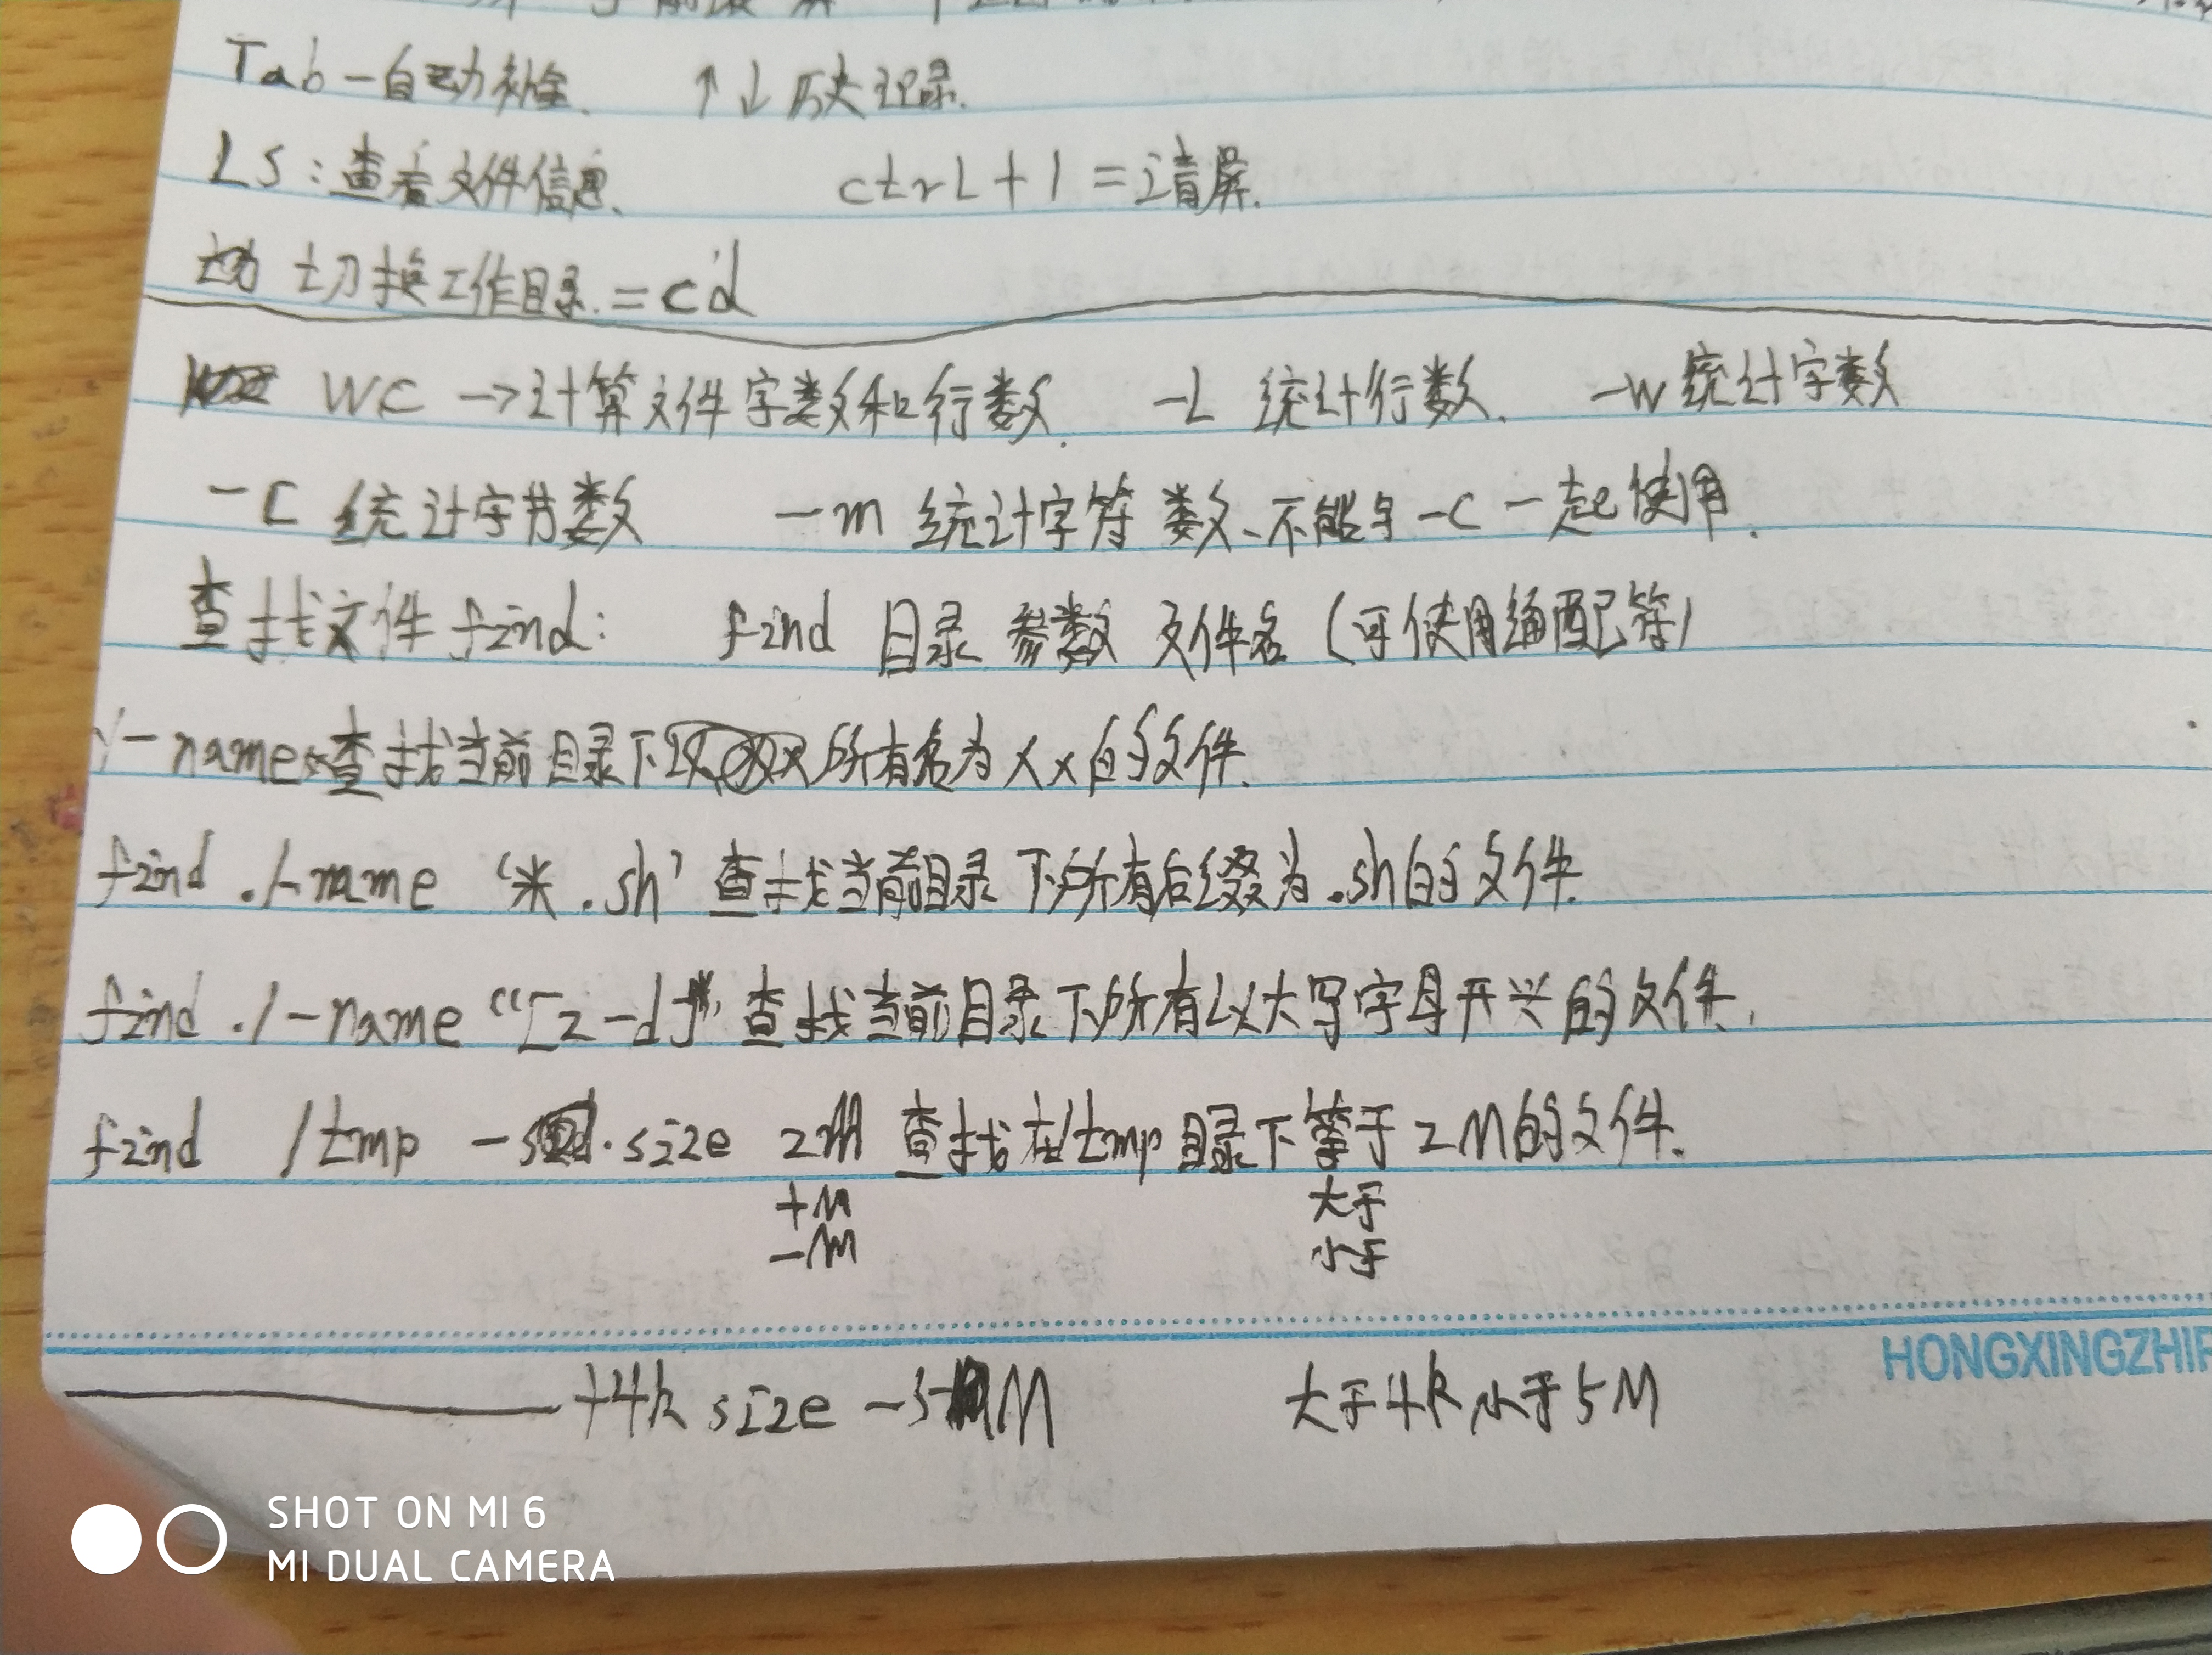 Tab-自动补全. ↑↓历史记录.
LS:查看文件信息、 ctrL+l=清屏.
切换工作目录.=cd
WC →计算文件字数和行数. -L 统计行数、 -W统计字数
-C 统计字节数 -m 统计字符数、不能与-c一起使用.
查找文件find: find 目录 参数 文件名(可使用通配符)
-name 查找当前目录下所有名为xx的文件.
find ./-name '*.sh' 查找当前目录下所有后缀为.sh的文件.
find ./-name "[z-d]*" 查找当前目录下所有以大写字母开头的文件.
find /tmp -size 2M 查找在/tmp目录下等于2M的文件.
+M 大于
-M 小于
HONGXINGZHI
+4k size -5M 大于4k小于5M
SHOT ON MI 6
MI DUAL CAMERA